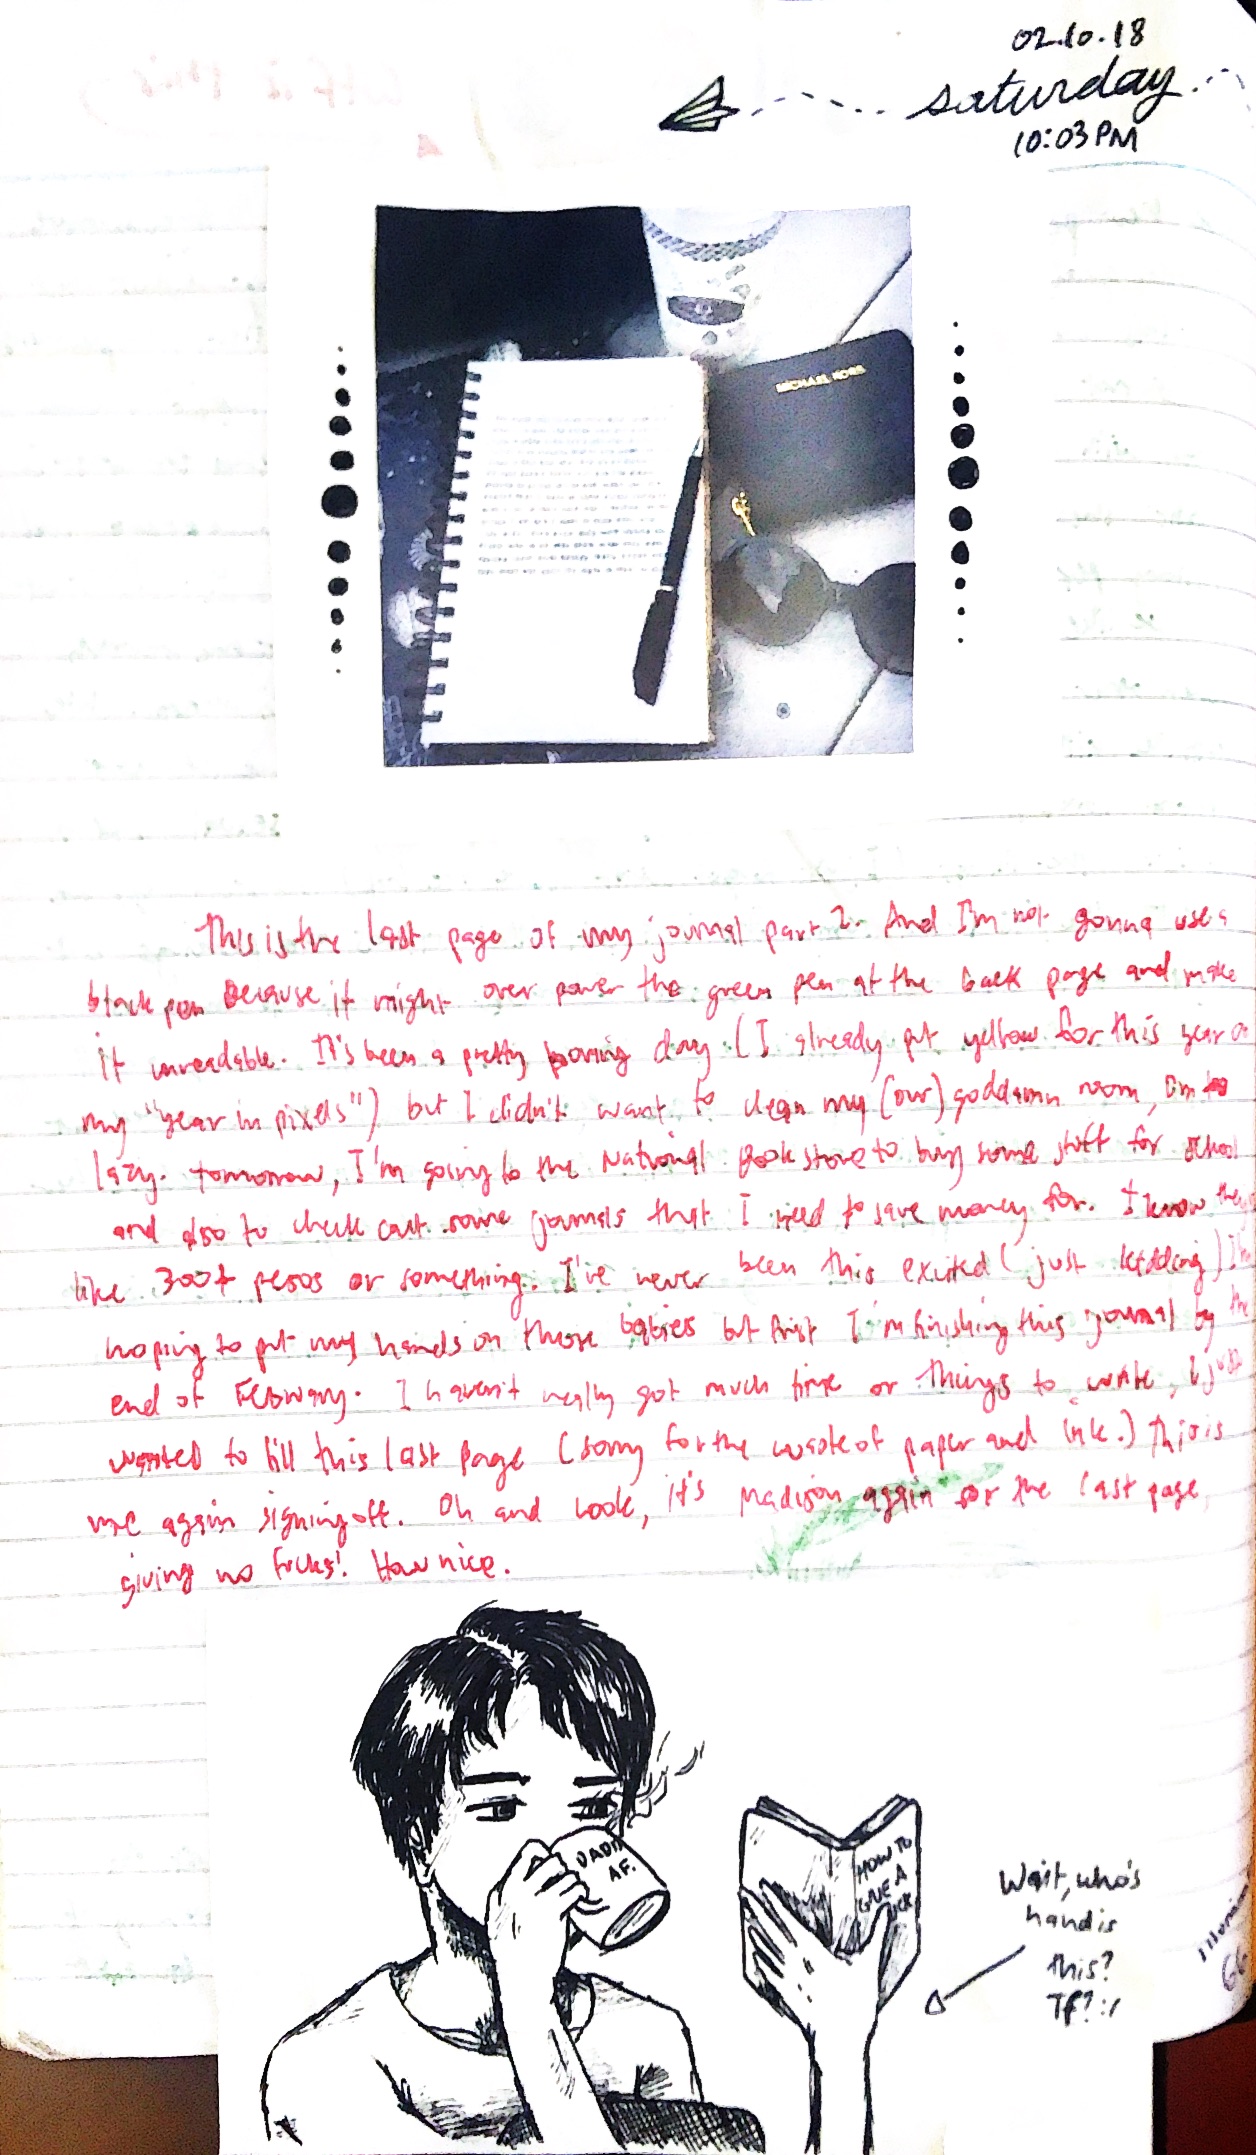 02.10.18
saturday
10:03 PM
MICHAEL KORS
This is the last page of my journal part 2. And I'm not gonna use a
black pen because it might over power the green pen at the back page and make
it unreadable. It's been a pretty boring day (I already put yellow for this year on
my "year in pixels") but I didn't want to clean my (our) goddamn room, I'm
lazy. tomorrow, I'm going to the National Book store to buy some stuff for school
and also to check out some journals that I need to save money for. I know they
like 300+ pesos or something. I've never been this exited (just kidding) I'm
hoping to put my hands on those babies but first I'm finishing this journal by the
end of February. I haven't really got much time or things to write, I just
wanted to fill this last page (sorry for the waste of paper and ink.) this is
me again signing off. Oh and look, it's Madison again for the last page,
giving no fucks! How nice.
DADDY
AF.
HOW TO
GIVE A
Wait, who's
hand is
this?
Tf? :/